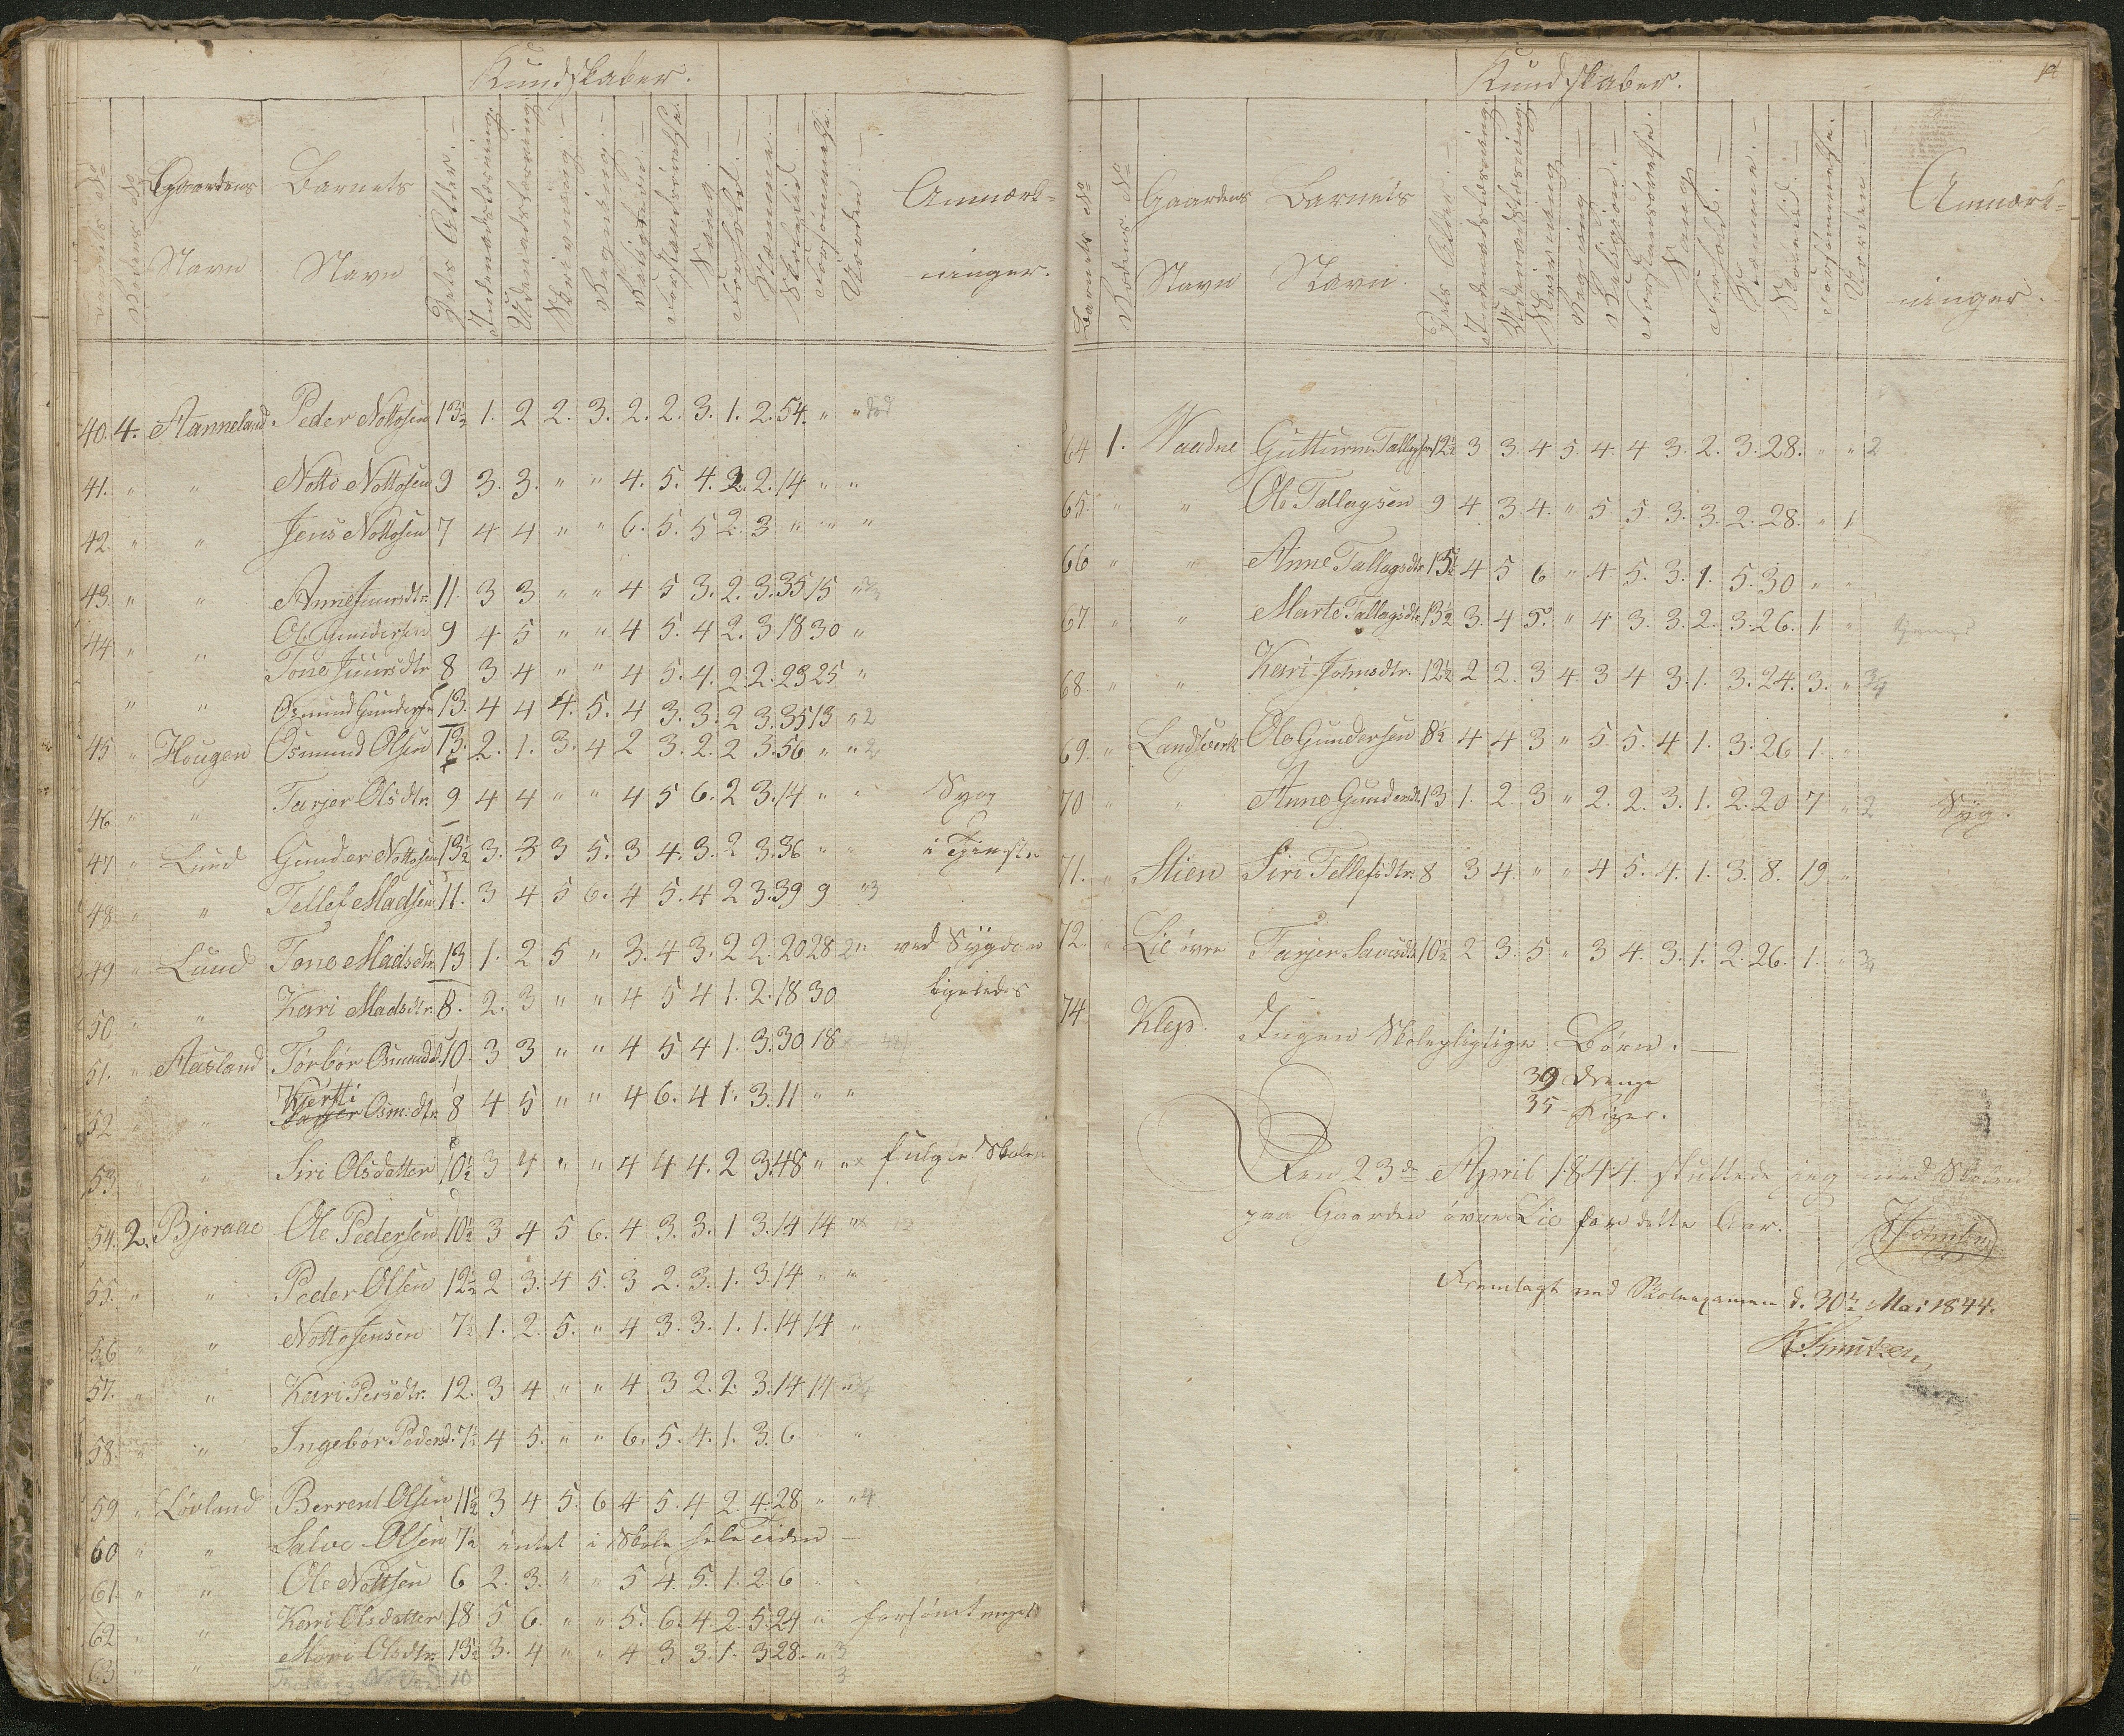 Kundskaber.
Gaardens Navn
Barnets Navn
Dets Alder.
Indenadslæsning.
Udenadslæsning
Skrivning
Regning
Religion
Forstandsøvelse.
Sang
Forhold.
Nemme.
Skoletid
Forsømmelse.
Orden
Anmærkninger.
40. 4. Aanneland Peder Nottosen 13½ 1. 2 2. 3. 2. 2. 3. 1. 2. 54. " "
41. " " Notto Nottosen 9 3. 3. " " 4. 5. 4. 2. 2. 14 " "
42. " " Jens Nottosen 7 4 4 " " 6. 5. 5 2. 3 " " "
43. " " Anne Gunersdtr. 11. 3 3 " " 4 5 3. 2. 3. 35 15 "
44 " " Ole Gundersen 9 4 5 " " 4 5. 4 2. 3 18 30 "
Tone Gunersdtr 8 3 4 " " 4 5. 4. 2. 2. 23 25 "
" " Osmund Gundersen 13. 4 4 4. 5. 4 3. 3. 2 3. 35 13 " 2
45 " Hougen Osmund Olsen 13. 2. 1. 3. 4 2 3. 2. 2 3. 56 " " 2
46 " " Tarjer Olsdtr. 9 4 4 " " 4 5 6. 2 3. 14 " " Syg
47 " Lund Gunder Nottosen 13½ 3. 3 3 5. 3 4. 3. 2 3. 36 " " i Tjeneste
48 " " Tellef Madsen 11. 3 4 5 6. 4 5. 4 2 3. 39 9 " 3
49 " Lund Tone Madsdtr. 13 1. 2 5 " 3. 4 3. 2 2. 20 28 2 " ved Sygdom
50 " " Kari Madsdtr. 8. 2. 3 " " 4 5 4 1. 2. 18 30 ligeledes
51. " Aasland Torbor Osmundd. 10. 3 3 " " 4 5 4 1. 3. 30 18
52 " " Kjersti Osm:dtr. 8 4 5 " " 4 6. 4 1. 3. 11 " "
53 " " Siri Olsdatter 10½ 3 4 " " 4 4 4. 2 3. 48 " " fulgte Skolen
54. 2. Bjoraae Ole Pedersen 10½ 3 4 5 6. 4 3. 3. 1 3. 14 14 "
55. " " Peder Olsen 12½ 2 3. 4 5. 3 2. 3. 1. 3. 14 " "
56 " " Notto Jensen 7½ 1. 2. 5. " 4 3. 3. 1. 1. 14 14 "
57. " " Kari Persdtr. 12. 3 4 " " 4 3 2. 2. 3. 14 14 "
58. " " Ingebor Pedersd. 7½ 4 5. " " 6. 5. 4. 1. 3. 6 "
59 " Løvland Berrent Olsen 11½ 3 4 5. 6 4 5. 4 2. 4. 28 " " 4
60 " " Salve Olsen 7½ intet i Skole hele tiden
61. " " Ole Nottsen 6 2. 3. " " 5 4. 5. 1. 2. 6
62 " " Kari Olsdatter 18 5 6. " " 5. 6. 4. 2. 5. 24 forsømt meget
63 " " Mari Olsdtr. 13½ 3. 4 " " 4 3 3. 1. 3 28. " 3
Kundskaber.
Barnets No
Rodens No
Gaardens Navn
Barnets Navn.
Dets Alder.
Indenadslæsning.
Udenadslæsning.
Skrivning
Regning
Religion.
Forstandsøvelse.
Sang
Forhold.
Nemme.
Skoletid.
Forsømmelse.
Orden.
Anmærkninger.
64 1. Vaadne Gutturm Tallagsen 12½ 3 3. 4 5. 4. 4 3. 2. 3. 28. " " 2
65. " " Ole Tallagsen 9 4. 3. 4. " 5. 5. 3. 3. 2. 28. " 1
66 " " Anne Tallagsdtr. 15½ 4 5 6 " 4 5. 3. 1. 5. 30 " "
67 " " Marte Tallagsdtr 13½ 3. 4 5. " 4 3. 3. 2. 3. 26. 1. "
68. " " Kari Johnsdtr. 12½ 2 2. 3 4 3 4 3. 1. 3. 24. 3. "
69. " Landsverk Ole Gundersen 8½ 4 4 3 " 5 5. 4 1. 3. 26 1. "
70 " " Anne Gundersdtr. 13 1. 2. 3 " 2. 2. 3. 1. 2. 20 7 " 2 Syg.
71. " Stien Siri Tellefsdtr. 8 3 4. " " 4 5. 4. 1. 3. 8. 19 "
72. " Lie øvre Tarjer Savesdtr 10½ 2 3. 5 " 3 4. 3. 1. 2. 26. 1. "
74. Klep. Ingen Skolepligtige Børn.
39 Drenge
35 Piger.
Den 23de April 1844. sluttede jeg med Skolen
paa Gaarden øvre Lie for dette Aar.
Fremlagt ved Skoleexamen d. 30te Mai 1844.
K. Knutzen